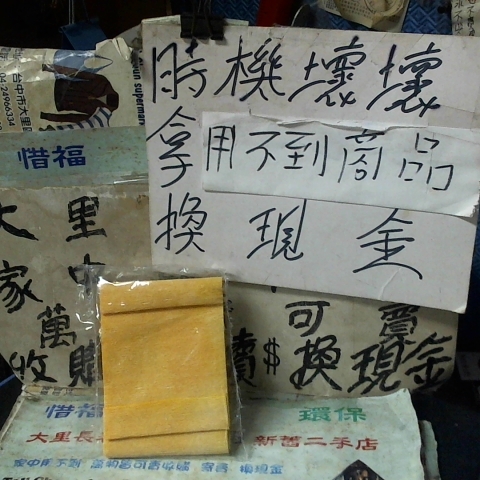 時機壞壞
拿用不到商品
換現金
台中市大里
04 24966334
惜福
大里
家中
萬
可賣
收購
賣$換現金
惜福
環保
大里長
新舊二手店